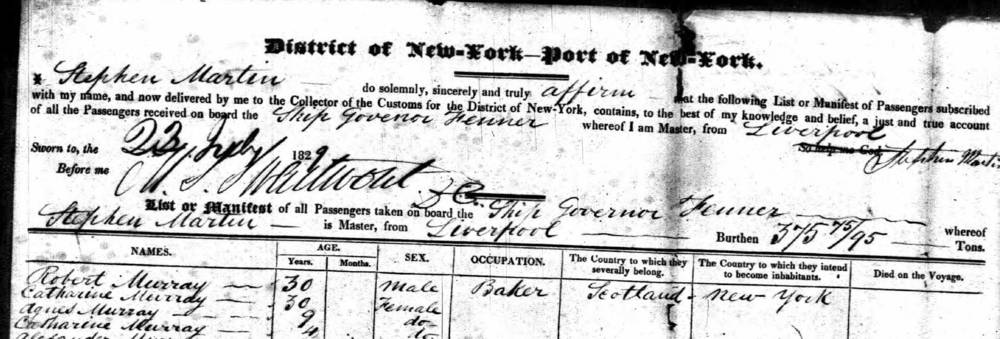 District of New-York—Port of New-York.
Stephen Martin do solemnly, sincerely and truly affirm that the following List or Manifest of Passengers subscribed
with my name, and now delivered by me to the Collector of the Customs for the District of New-York, contains, to the best of my knowledge and belief, a just and true account
of all the Passengers received on board the Ship Govenor Fenner whereof I am Master, from Liverpool
So help me God. Stephen Martin
Sworn to, the 23 1829
Before me
List or Manifest of all Passengers taken on board the Ship Governor Fenner whereof
Stephen Martin is Master, from Liverpool Burthen 375 75/95 Tons.
NAMES. AGE. SEX. OCCUPATION. The Country to which they severally belong. The Country to which they intend to become inhabitants. Died on the Voyage.
Years. Months.
Robert Murray 30 male Baker Scotland New York
Catharine Murray 30 Female
Agnes Murray 9 do
Catharine Murray 4 do